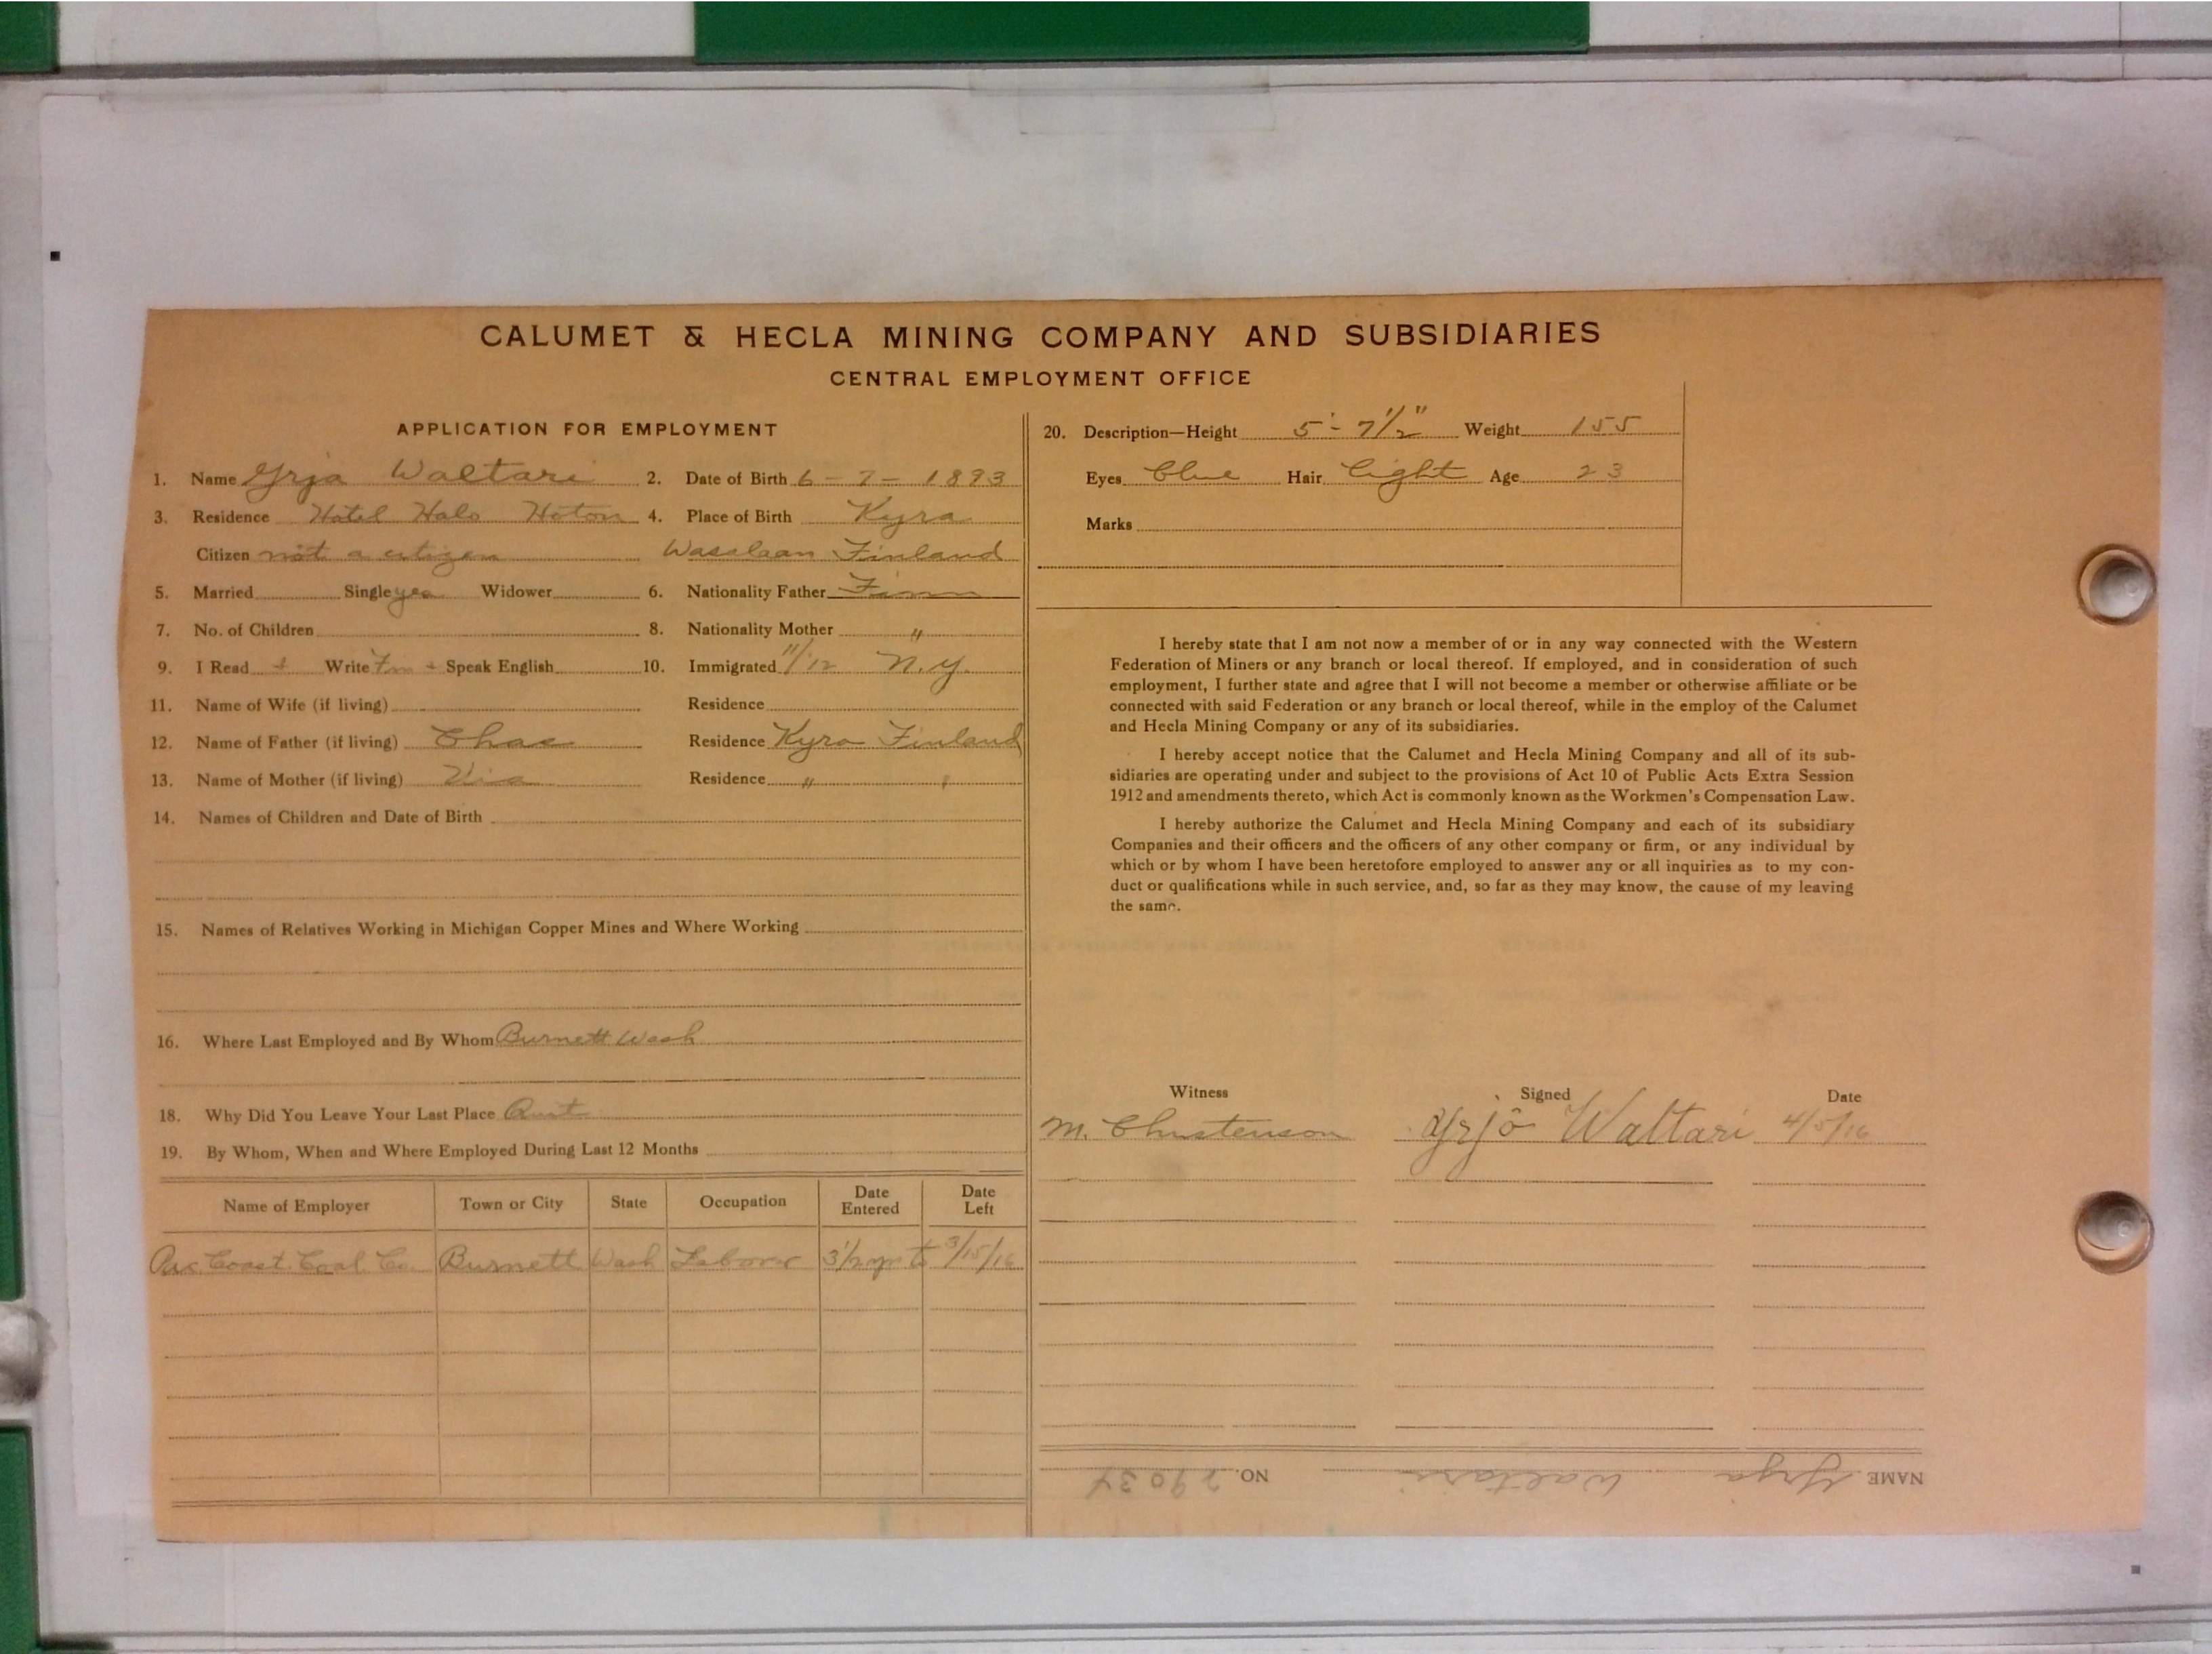 CALUMET & HECLA MINING COMPANY AND SUBSIDIARIES
CENTRAL EMPLOYMENT OFFICE
APPLICATION FOR EMPLOYMENT
1. Name Yrja Waltari 2. Date of Birth 6 - 7 - 1893
3. Residence Hotel Halo Hoton 4. Place of Birth Kyra
Citizen not a citizen Wasalaan Finland
5. Married Single yes Widower 6. Nationality Father Finn
7. No. of Children 8. Nationality Mother "
9. I Read + Write Finn + Speak English 10. Immigrated 11/12 N.Y.
11. Name of Wife (if living) Residence
12. Name of Father (if living) Chas Residence Kyro Finland
13. Name of Mother (if living) Residence " "
14. Names of Children and Date of Birth
15. Names of Relatives Working in Michigan Copper Mines and Where Working
16. Where Last Employed and By Whom Burnett Wash
18. Why Did You Leave Your Last Place Quit
19. By Whom, When and Where Employed During Last 12 Months
Name of Employer Town or City State Occupation Date Entered Date Left
Pac Coast Coal Co. Burnett Wash Laborer 3 1/2 yr to 3/15/16
20. Description—Height 5' - 7 1/2" Weight 155
Eyes Blue Hair Light Age 23
Marks
I hereby state that I am not now a member of or in any way connected with the Western
Federation of Miners or any branch or local thereof. If employed, and in consideration of such
employment, I further state and agree that I will not become a member or otherwise affiliate or be
connected with said Federation or any branch or local thereof, while in the employ of the Calumet
and Hecla Mining Company or any of its subsidiaries.
I hereby accept notice that the Calumet and Hecla Mining Company and all of its sub-
sidiaries are operating under and subject to the provisions of Act 10 of Public Acts Extra Session
1912 and amendments thereto, which Act is commonly known as the Workmen's Compensation Law.
I hereby authorize the Calumet and Hecla Mining Company and each of its subsidiary
Companies and their officers and the officers of any other company or firm, or any individual by
which or by whom I have been heretofore employed to answer any or all inquiries as to my con-
duct or qualifications while in such service, and, so far as they may know, the cause of my leaving
the same.
Witness Signed Date
M. Christenson Yrjö Waltari 4/5/16
NAME Yrja Waltari NO. 29034